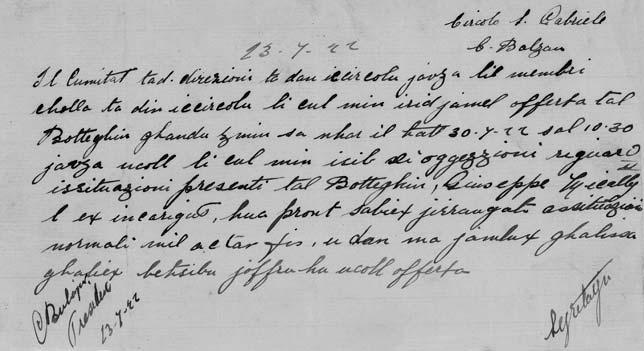 Circolo S. Gabriele
C. Balzan
23-7-22
Il Cumitat tad-direzioni ta dan iccircolu javza lil membri
cholla ta din iccircolu li cul min irid jamel offerta tal
Botteghin ghandu zmin sa nhar il hatt 30-7-22 sal 10.30
javza ucoll li cul min isib xi oggezzioni riguard
issituazioni presenti tal Botteghin, Giuseppe
l ex incarigat, hua pront sabiex jirrangali assituazioni
normali mil actar fis, u dan ma jamlux ghalissa
ghaliex behsibu joffru hu ucoll offerta
23-7-22